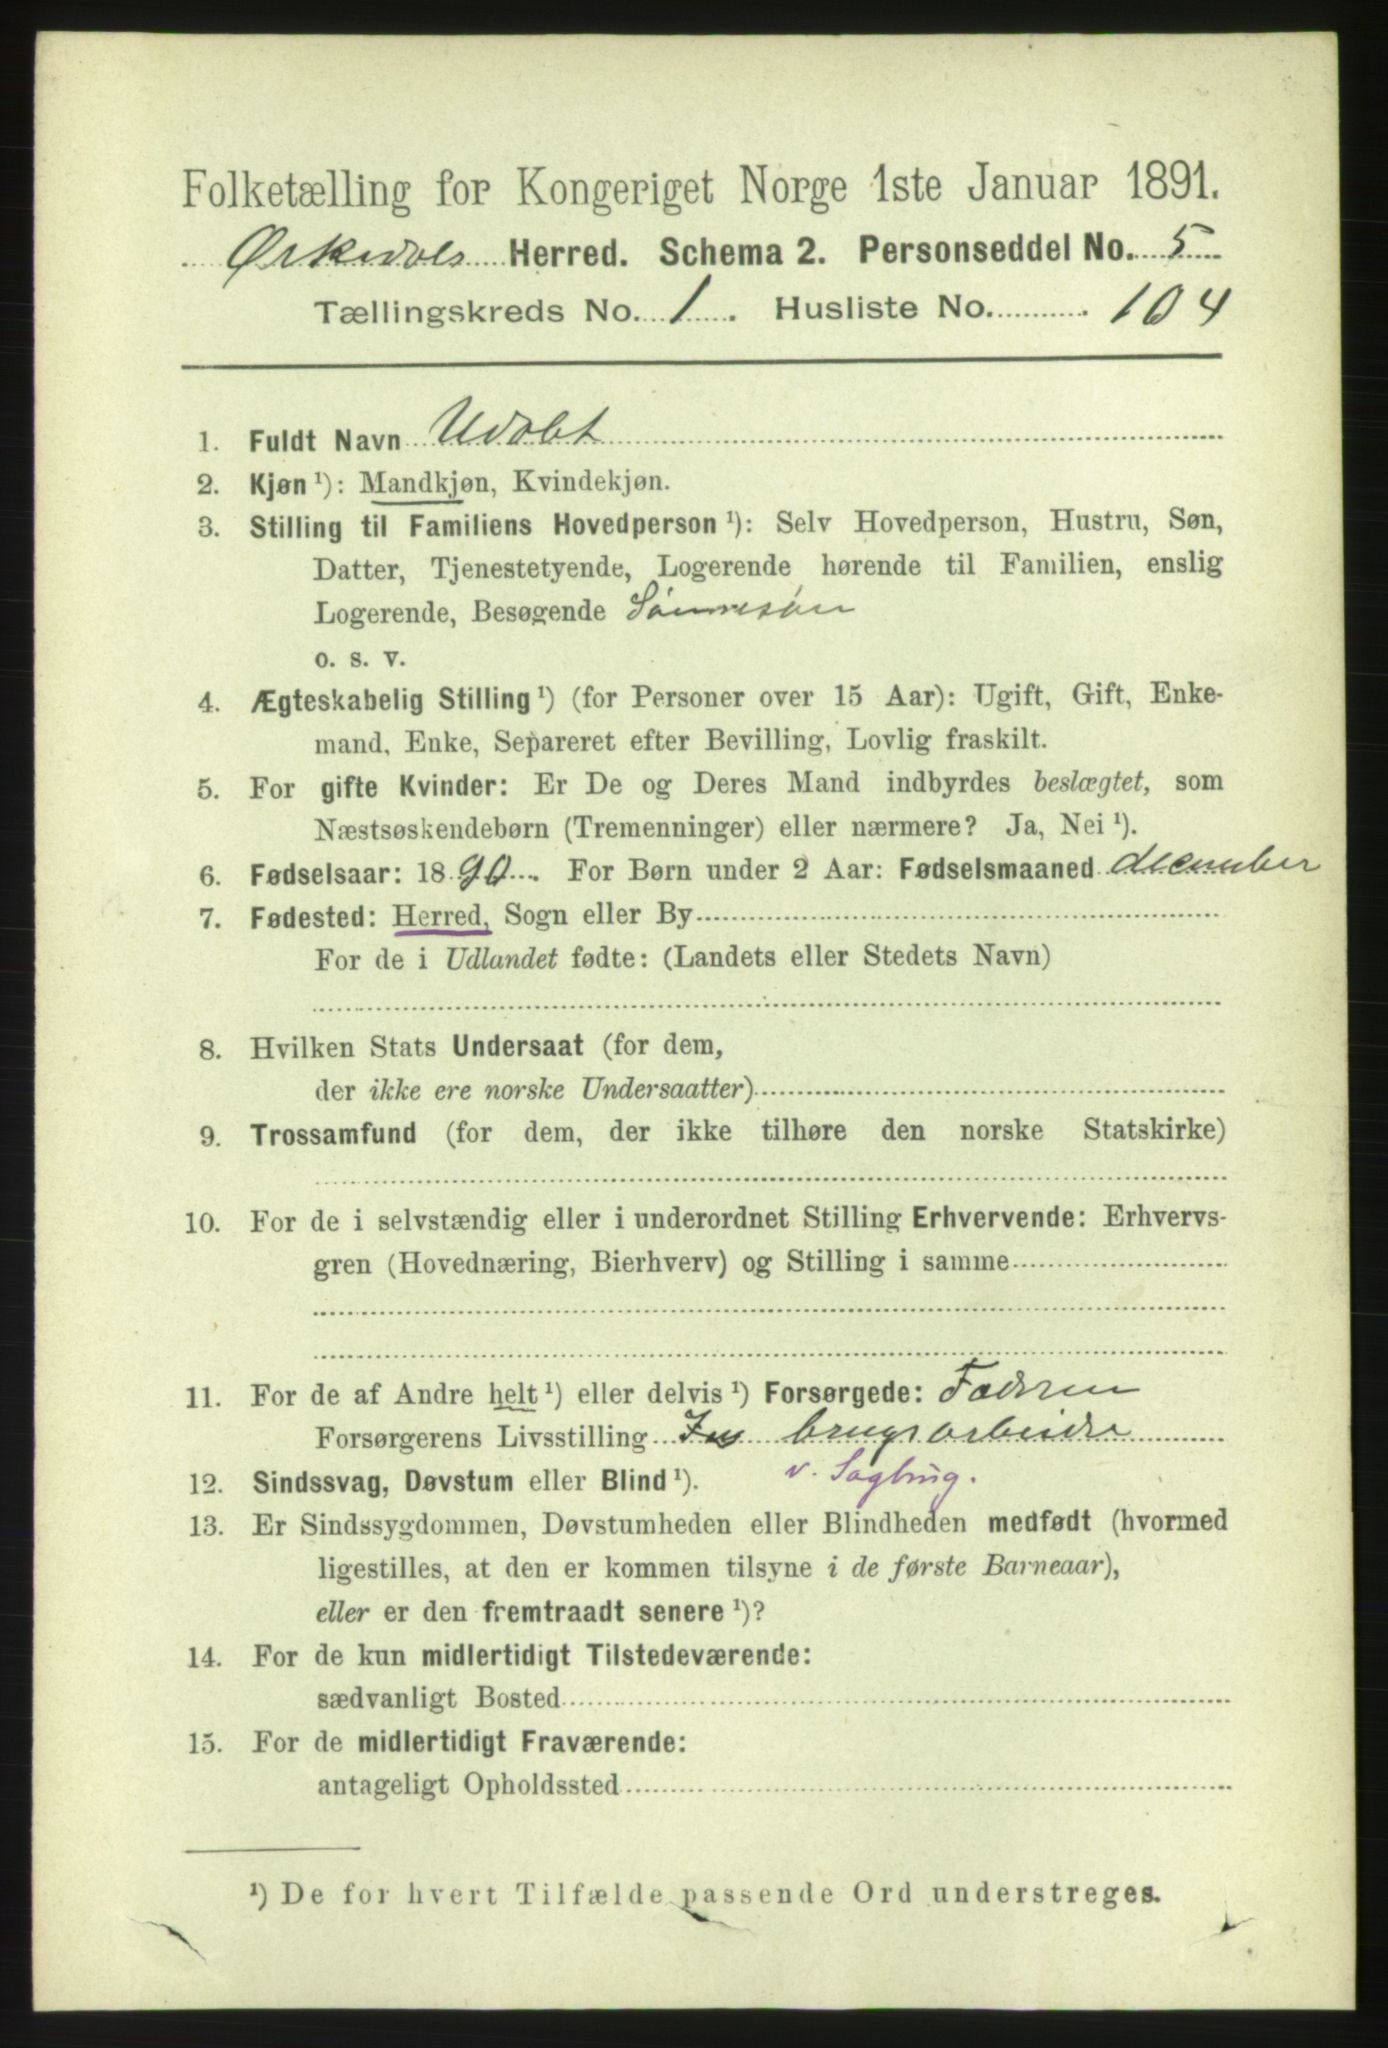 Folketælling for Kongeriget Norge 1ste Januar 1891.
Ørkedals Herred. Schema 2. Personseddel No. 5
Tællingskreds No. 1. Husliste No. 104
1. Fuldt Navn Udøbt
2. Kjøn ¹): Mandkjøn, Kvindekjøn.
3. Stilling til Familiens Hovedperson ¹): Selv Hovedperson, Hustru, Søn,
Datter, Tjenestetyende, Logerende hørende til Familien, enslig
Logerende, Besøgende Sønnesøn
o. s. v.
4. Ægteskabelig Stilling ¹) (for Personer over 15 Aar): Ugift, Gift, Enke-
mand, Enke, Separeret efter Bevilling, Lovlig fraskilt.
5. For gifte Kvinder: Er De og Deres Mand indbyrdes beslægtet, som
Næstsøskendebørn (Tremenninger) eller nærmere? Ja, Nei ¹).
6. Fødselsaar: 1890. For Børn under 2 Aar: Fødselsmaaned december
7. Fødested: Herred, Sogn eller By
For de i Udlandet fødte: (Landets eller Stedets Navn)
8. Hvilken Stats Undersaat (for dem,
der ikke ere norske Undersaatter)
9. Trossamfund (for dem, der ikke tilhøre den norske Statskirke)
10. For de i selvstændig eller i underordnet Stilling Erhvervende: Erhvervs-
gren (Hovednæring, Bierhverv) og Stilling i samme
11. For de af Andre helt ¹) eller delvis ¹) Forsørgede: Faderen
Forsørgerens Livsstilling brugsarbeider
v. Sagbrug.
12. Sindssvag, Døvstum eller Blind ¹).
13. Er Sindssygdommen, Døvstumheden eller Blindheden medfødt (hvormed
ligestilles, at den er kommen tilsyne i de første Barneaar),
eller er den fremtraadt senere ¹)?
14. For de kun midlertidigt Tilstedeværende:
sædvanligt Bosted
15. For de midlertidigt Fraværende:
antageligt Opholdssted
¹) De for hvert Tilfælde passende Ord understreges.